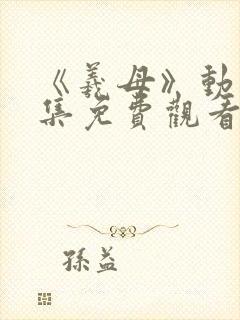 《義母》動
集免費觀看
孫益